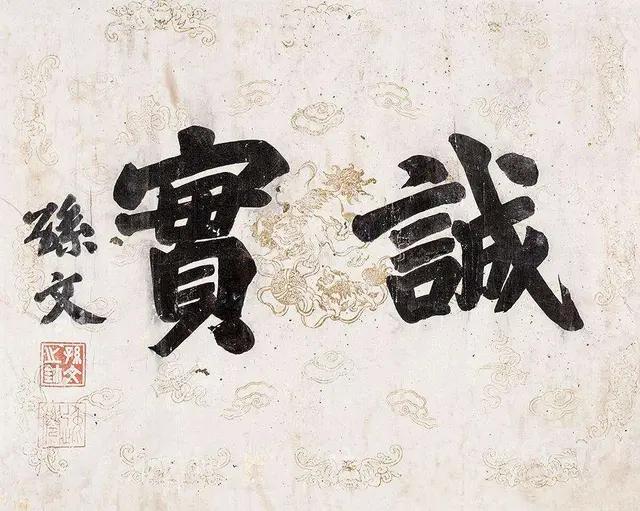 誠實
孫文
孫文之印